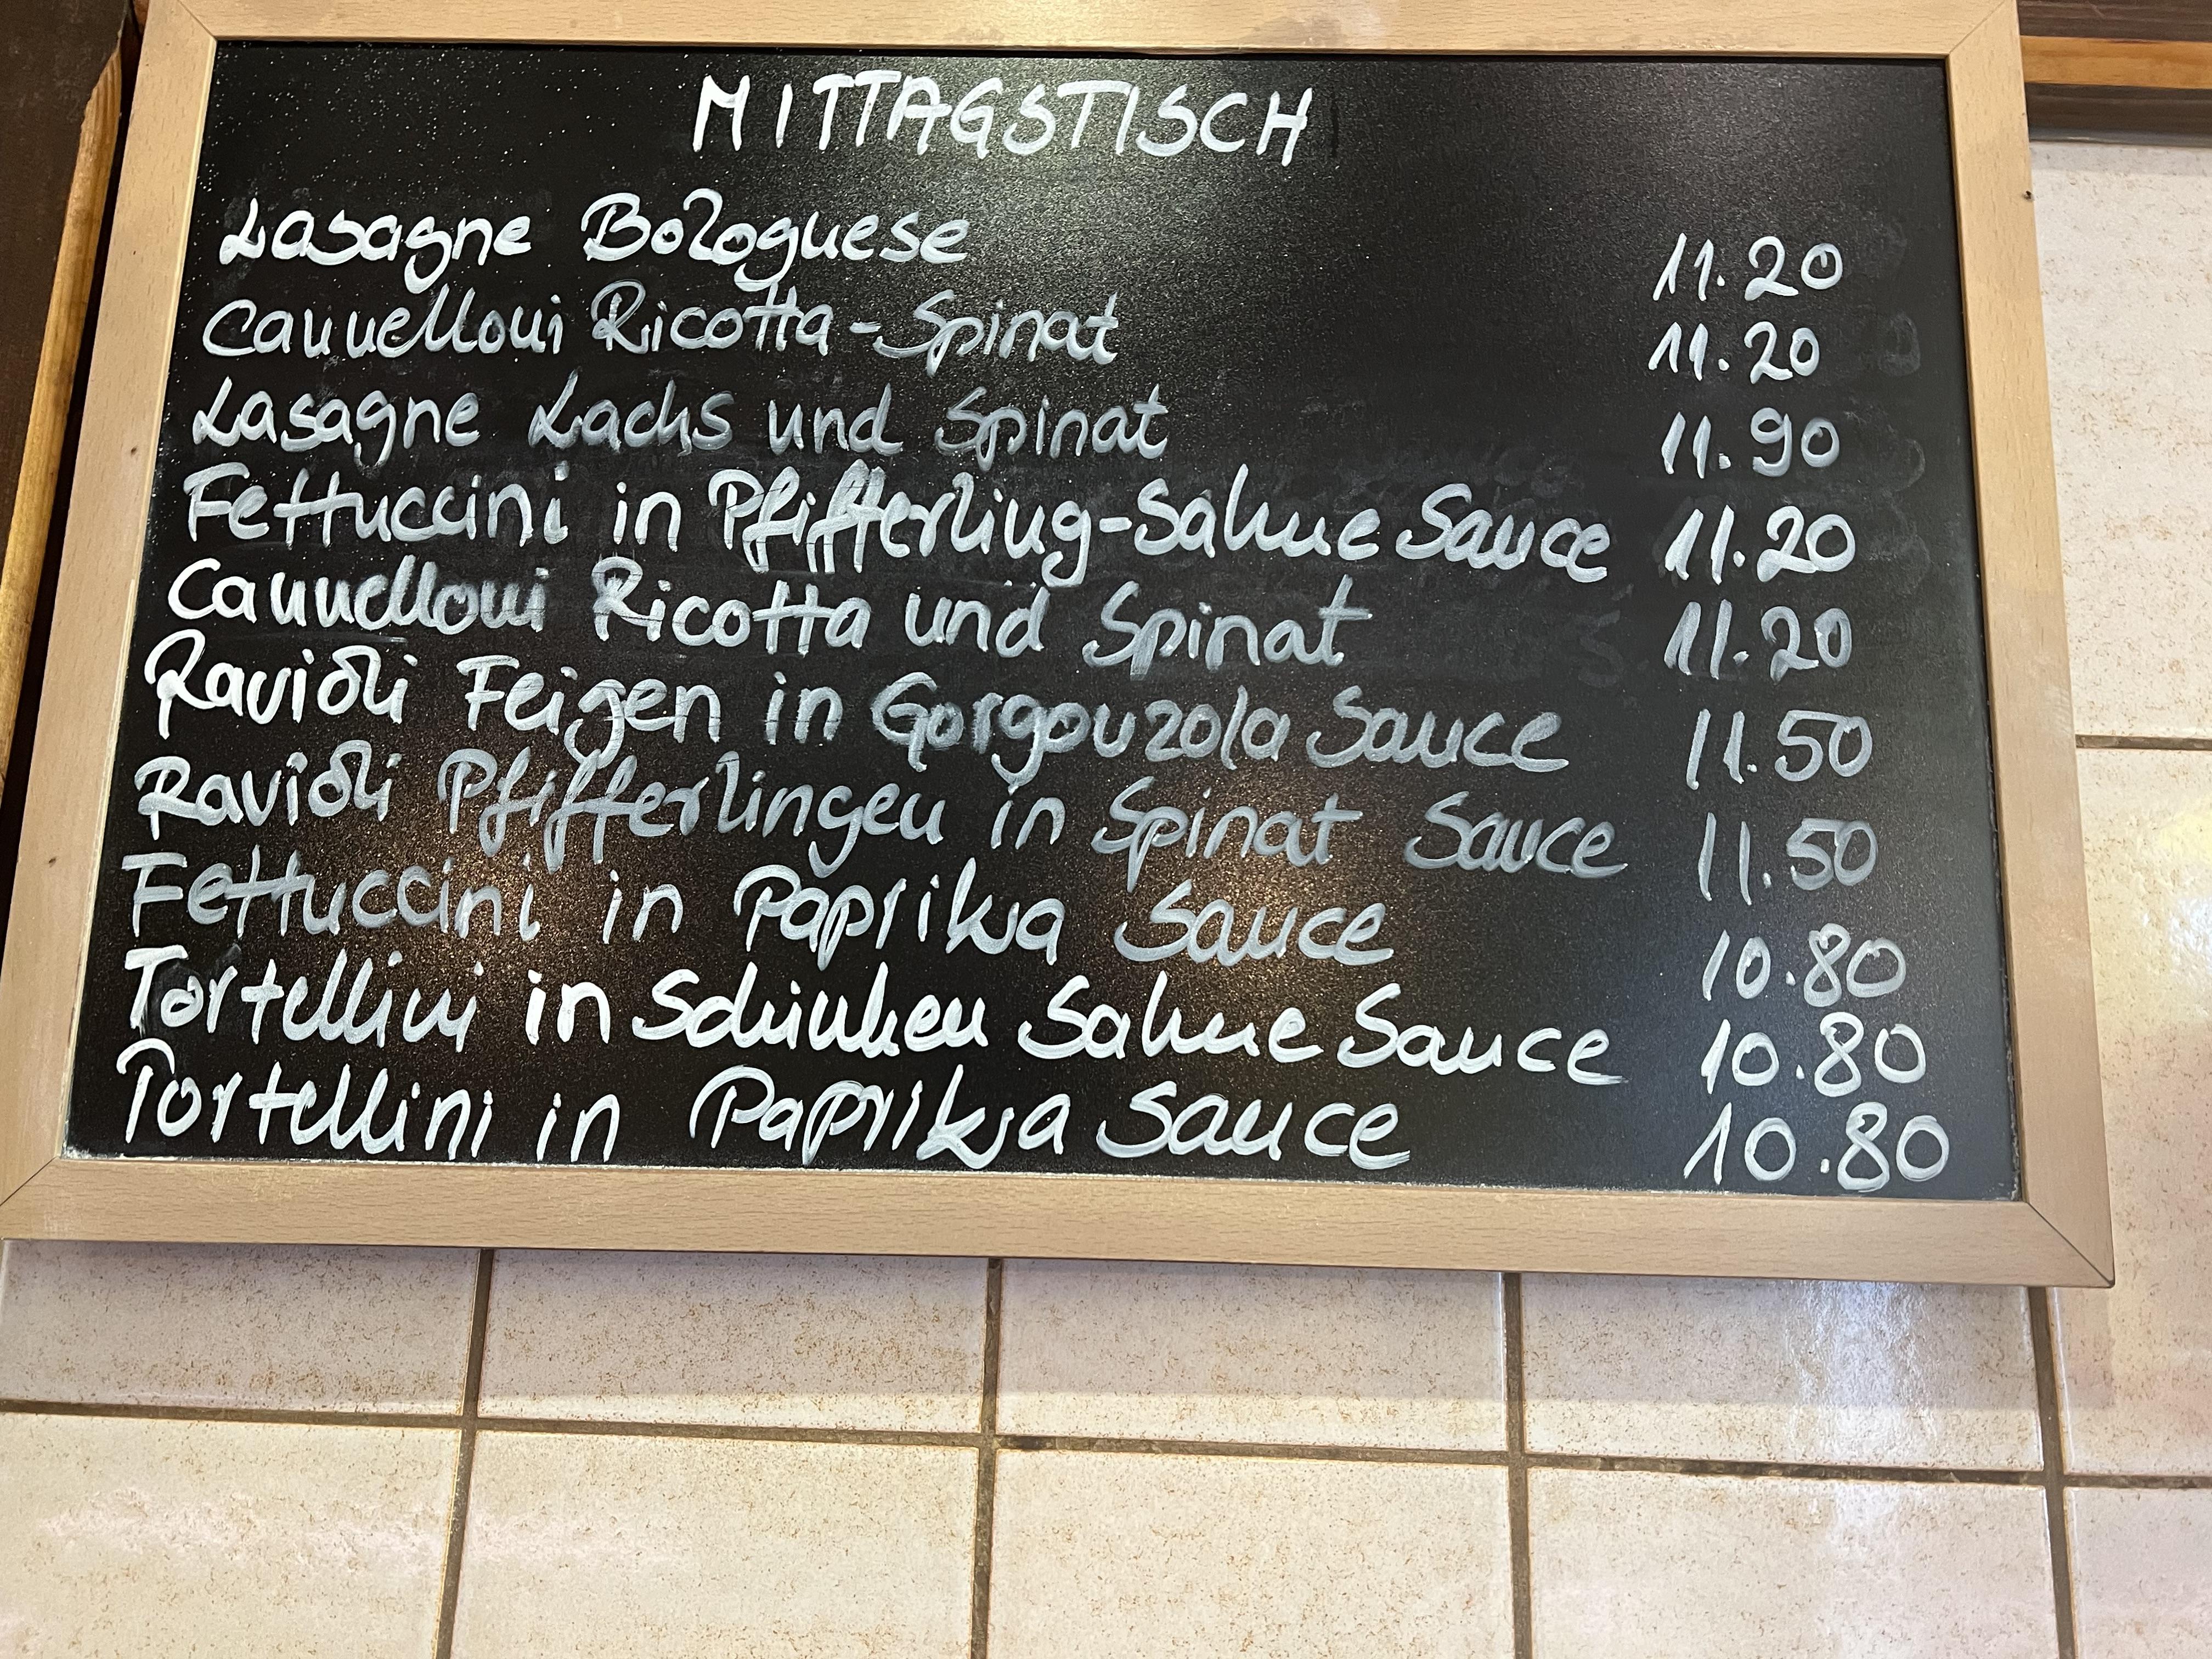 MITTAGSTISCH
Lasagne Bolognese 11.20
Cannelloni Ricotta-Spinat 11.20
Lasagne Lachs und Spinat 11.90
Fettuccini in Pfifferling-Sahne Sauce 11.20
Cannelloni Ricotta und Spinat 11.20
Ravioli Feigen in Gorgonzola Sauce 11.50
Ravioli Pfifferlingen in Spinat Sauce 11.50
Fettuccini in Paprika Sauce 10.80
Tortellini in Schinken Sahne Sauce 10.80
Tortellini in Paprika Sauce 10.80